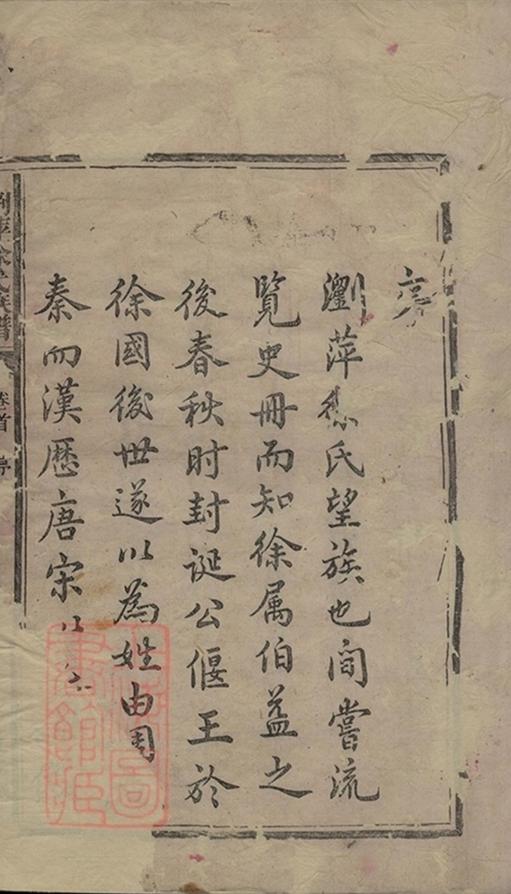 序
瀏萍徐氏望族也間嘗流
覽史冊而知徐属伯益之
後春秋时封诞公偃王於
徐國後世遂以為姓由周
秦而漢歷唐宋以
族譜
卷首
序
圖
書館